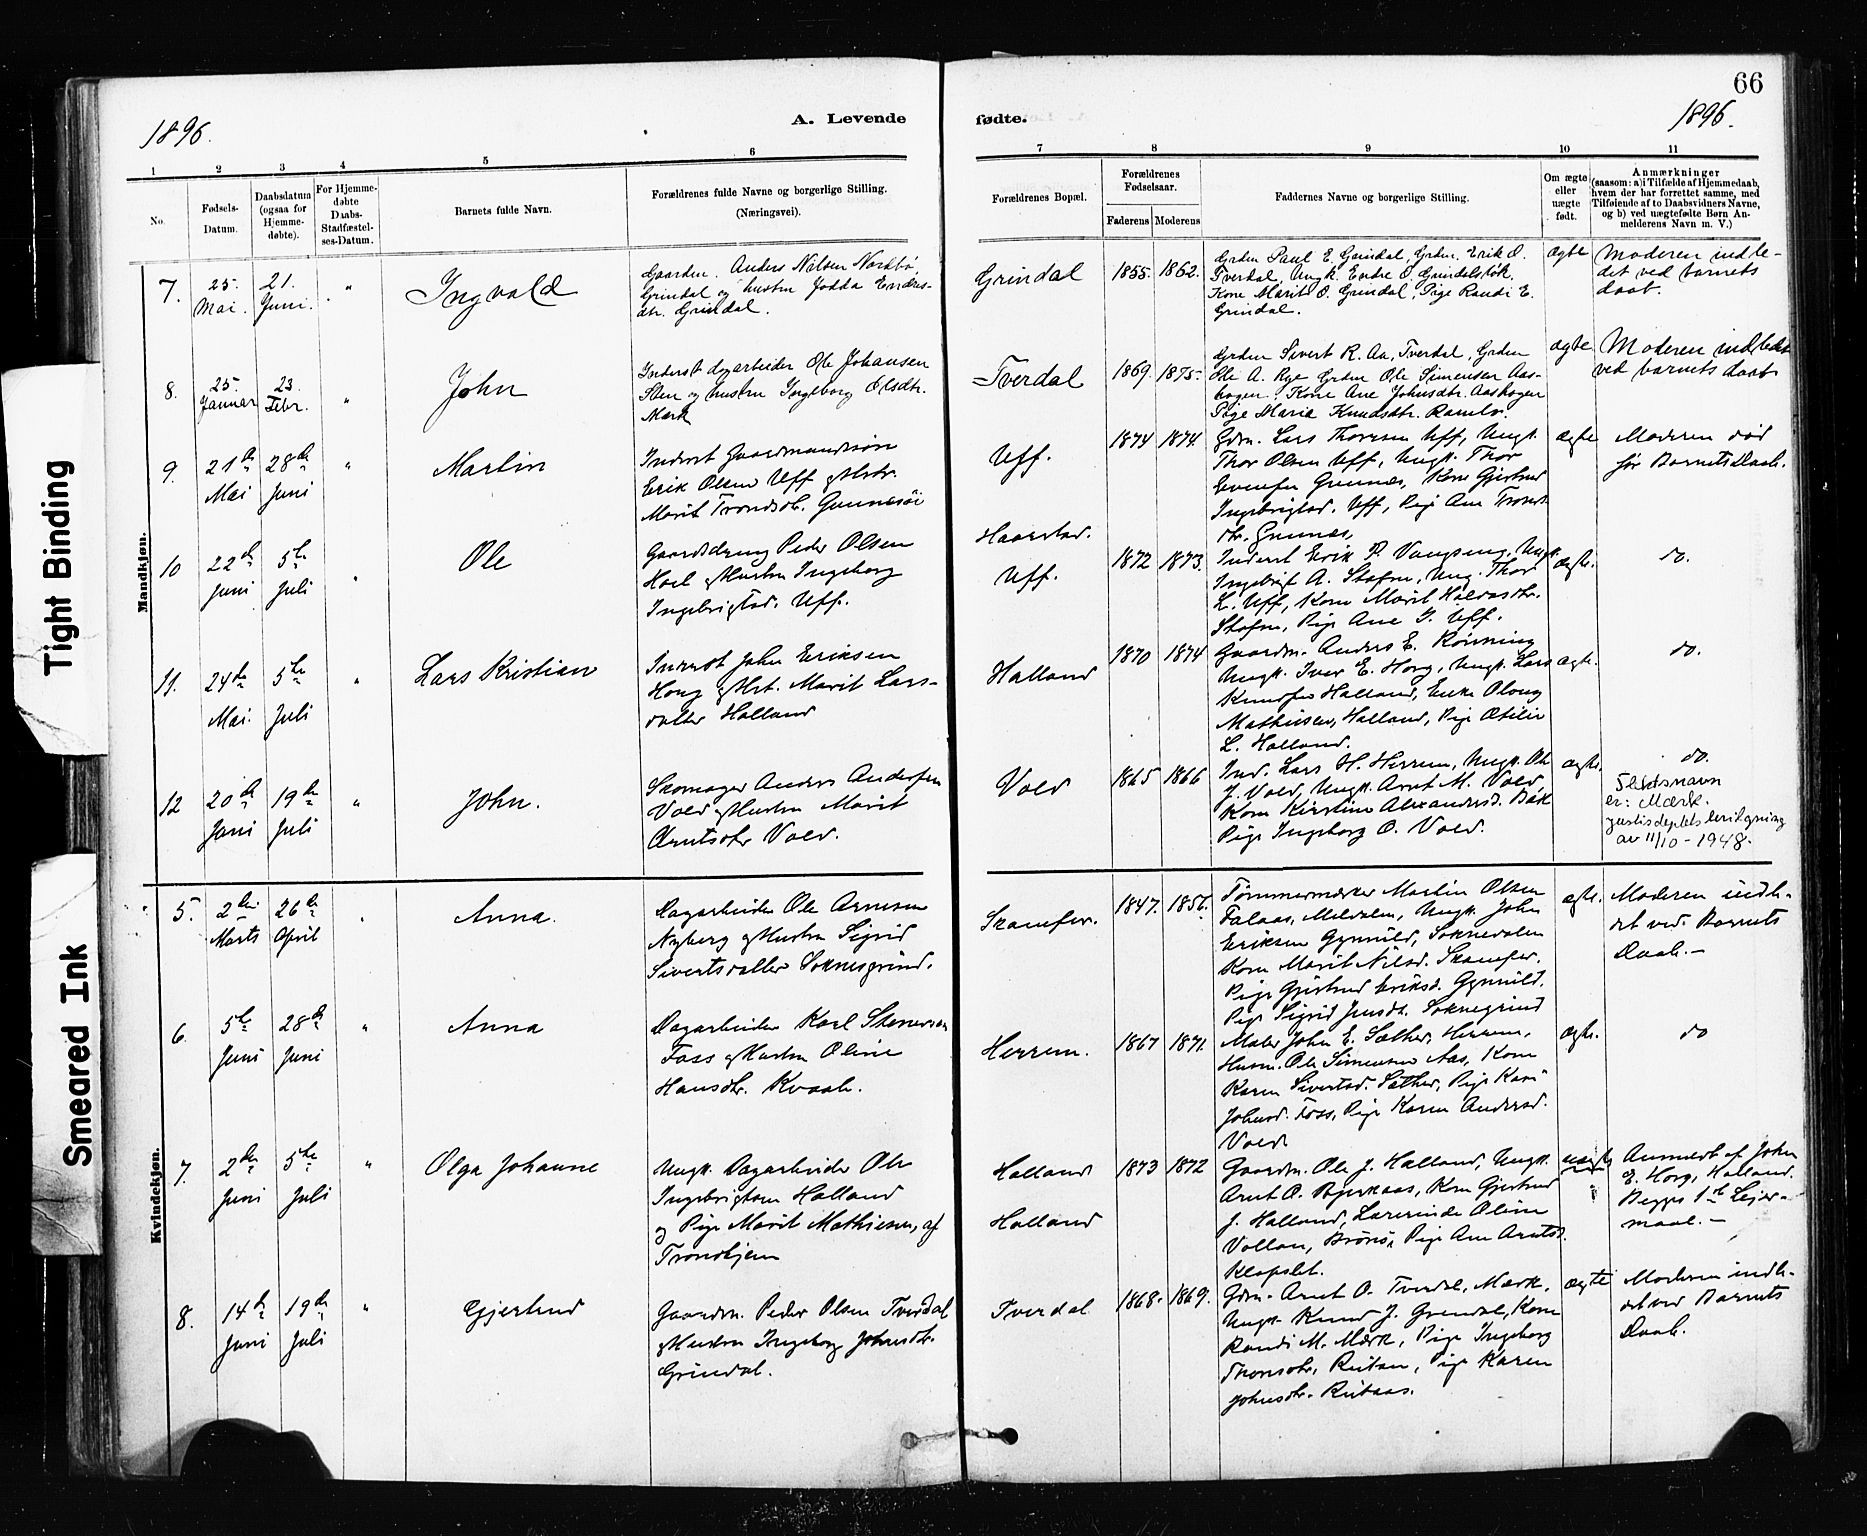 66
1896.
A. Levende
fødte.
1896.
1 2 3 4 5 6 7 8 9 10 11
No.
Fødsels-
Datum.
Daabsdatum
(ogsaa for
Hjemme-
døbte).
For Hjemme-
døbte
Daabs-
Stadfæstel-
ses-Datum.
Barnets fulde Navn.
Forældrenes fulde Navne og borgerlige Stilling.
(Næringsvei).
Forældrenes Bopæl.
Forældrenes
Fødselsaar.
Faderens Moderens
Faddernes Navne og borgerlige Stilling.
Om ægte
eller
uægte
født.
Anmærkninger
(saasom: a) i Tilfælde af Hjemmedaab,
hvem der har forrettet samme, med
Tilføiende af to Daabsvidners Navne,
og b) ved uægtefødte Børn An-
melderens Navn m. V.)
Mandkjøn.
7.
25.
Mai.
21.
Juni.
"
Ingvald
Gaardm. Anders Nilsen Nordbø,
Grindal og hustru Jodda Endres-
dtr. Grindal.
Grindal
1855. 1862.
Grdm Paul E. Grindal, Grdm. Erik O.
Tverdal, Ungk. Endre O. Grindalsløk.
Kone Marit O. Grindal, Pige Randi E.
Grindal.
ægte
Moderen indle-
det ved barnets
daab.
8.
25.
Januar
23.
Febr.
"
John
Inderst dagarbeider Ole Johansen
Steen og hustru Ingeborg Olsdtr.
Mærk
Tverdal
1869. 1875.
Grdm Sivert R. Aa, Tverdal, Grdm
Ole A. Rye Grdm Ole Simensen Aas-
hogen. Kone Ane Johnsdtr. Aashogen
Pige Maria Knudsdtr. Ramlo.
ægte
Moderen indledet
ved barnets daab
9.
21de
Mai
28de
Juni
"
Martin
Inderst Gaardmandssøn
Erik Olsen Uff & Hstr.
Marit Trondsdtr. Gunnesøi
Uff.
Haarstad.
1874 1874.
Gdm. Lars Thoresen Uff, Ungk.
Thor Olsen Uff, Ungk. Thor
Evensen Grinnæs, Kone Gjertrud
Ingebrigtsd. Uff, Pige Ane Tronds
dtr. Grinnæs,
ægte
Moderen død
før Barnets Daab.
10
22de
Juni
5te
Juli
"
Ole
Gaarddreng Peder Olsen
Hoel & Hustru Ingeborg
Ingebrigtsd. Uff.
Uff.
1872 1873.
Inderst Erik P. Vangseng, Ungk.
Ingebrigt A. Stofne, Ung. Thor
L. Uff, Kone Marit Haldosdtr.
Stofne, Pige Ane I. Uff.
ægte.
do.
11.
24de
Mai.
5te
Juli
"
Lars Kristian
Inderst John Eriksen
Horg & Hst. Marit Lars-
datter Halland
Halland
1870 1874
Gaardm. Anders E. Rønning
Ungk. Iver E. Horg, Ungk. Lars
Knudsen Halland, Enke Oloug
Mathiesen, Halland, Pige Otilie
L. Halland.
ægte.
do.
12
20de
Juni
19de
Juli
"
John.
Skomager Anders Andersen
Vold & Hustru Marit
Arntsdtr Vold.
Vold
1865 1866
Ind. Lars H. Herrem, Ungk. Ole
J. Vold, Ungk. Arnt M. Vold,
Kone Kirstine Alexandersd. Bak
Pige Ingeborg O. Vold.
ægte.
do.
Slektsnavn
er: Mærk.
justisdeptets beritgning
av 11/10-1948.
Kvindekjøn.
5.
2den
Marts
26de
April
"
Anna.
Dagarbeider Ole Arnesen
Nyberg & Hustru Sigrid
Sivertsdatter Soknesgrind.
Skamfer.
1847. 1856.
Tømmermærker Martin Olsen
Falaas, Meldalen, Ungk. John
Eriksen Gynnild, Soknedalen
Kone Marit Nilsd. Skamfer.
Pige Gjertrud Eriksd. Gynnild,
Pige Sigrid Jensdt. Soknegrind
ægte.
Moderen indle-
det ved Barnets
Daab.-
6.
5te
Juni
28de
Juni
"
Anna
Dagarbeider Karl Stenersen
Foss & Hustru Oline
Hansdtr. Kvaale.
Herrem.
1867 1871.
Maler John E. Sæther, Herrem,
Husm. Ole Simensen Aas, Kone
Karen Sivertsd. Sæther, Pige Kari
Johnsd. Foss, Pige Karen Andersd.
Vold
ægte.
do
7.
2den
Juni
5te
Juli
"
Olga Johanne
Ungk. Dagarbeider Ole
Ingebrigtsen Halland
og Pige Marit Mathiesen, af
Trondhjem
Halland
Halland
1873 1872
Gaardm. Ole J. Halland, Ungk.
Arnt O. Bjerkaas, Kone Gjertrud
J. Halland, Lærerinde Oline
Vollan, Pige Ane Arntsd.
Klapslet.
uægte
Anmeldt af John
E. Horg, Halland.
Begges 1ste Leier-
maal.-
8.
14de
Juni
19de
Juli
"
Gjertrud
Gaardm. Peder Olsen Tverdal
& Hustru Ingeborg Johnsdtr.
Grindal.
Tverdal
1868. 1869.
Gdm. Arnt O. Tverdal, Mærk,
Ungk. Knud J. Grindal, Kone
Randi M. Mærk, Pige Ingeborg
Thorsdtr, Riitan, Pige Karen
Johnsdtr. Riitaas.
ægte
Moderen indle-
det ved Barnets
Daab.
Tight Binding
Smeared Ink